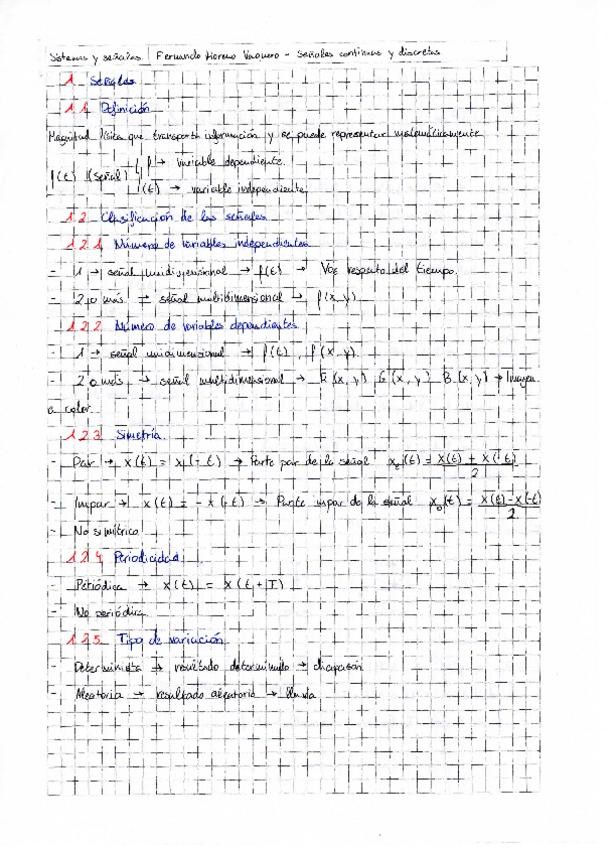 Sistemas y señales | Fernando Moreno Vaquero - Señales continuas y discretas
1. Señales
1.1. Definición
Magnitud física que transporta información y se puede representar matemáticamente
f(t) (señal) { f → variable dependiente.
(t) → variable independiente.
1.2. Clasificación de las señales
1.2.1. Número de variables independientes
- 1 → señal unidimensional → f(t) → Voz respecto del tiempo.
- 2 o más → señal multidimensional → f(x, y)
1.2.2. Número de variables dependientes
- 1 → señal unidimensional → f(t), f(x, y).
- 2 o más → señal multidimensional → R(x, y), G(x, y), B(x, y) → Imagen
a color.
1.2.3. Simetría.
- Par → x(t) = x(-t) → Parte par de la señal xe(t) = (x(t) + x(-t))/2
- Impar → x(t) = -x(-t) → Parte impar de la señal xo(t) = (x(t) - x(-t))/2
- No simétrica
1.2.4. Periodicidad.
- Periódica → x(t) = x(t + T)
- No periódica
1.2.5. Tipo de variación
- Determinista → resultado determinado → diapasón
- Aleatoria → resultado aleatorio → lluvia